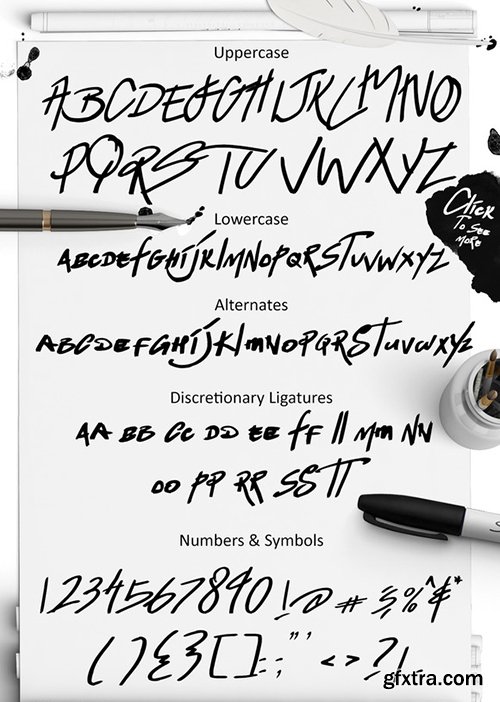 Uppercase
ABCDEFGHIJKLMNO
PQRSTUVWXYZ
Click
To See
More
Lowercase
ABCDEfGHIJKlMNOPQRSTUVWXYZ
Alternates
ABCDEFGHIJKlmNOPQRSTUVWXYZ
Discretionary Ligatures
AA BB CC DD EE ff ll MM NN
OO PP RR SS TT
Numbers & Symbols
1234567890!@#$%^&*
(){}[]:;"'<>?/
gfxtra.com